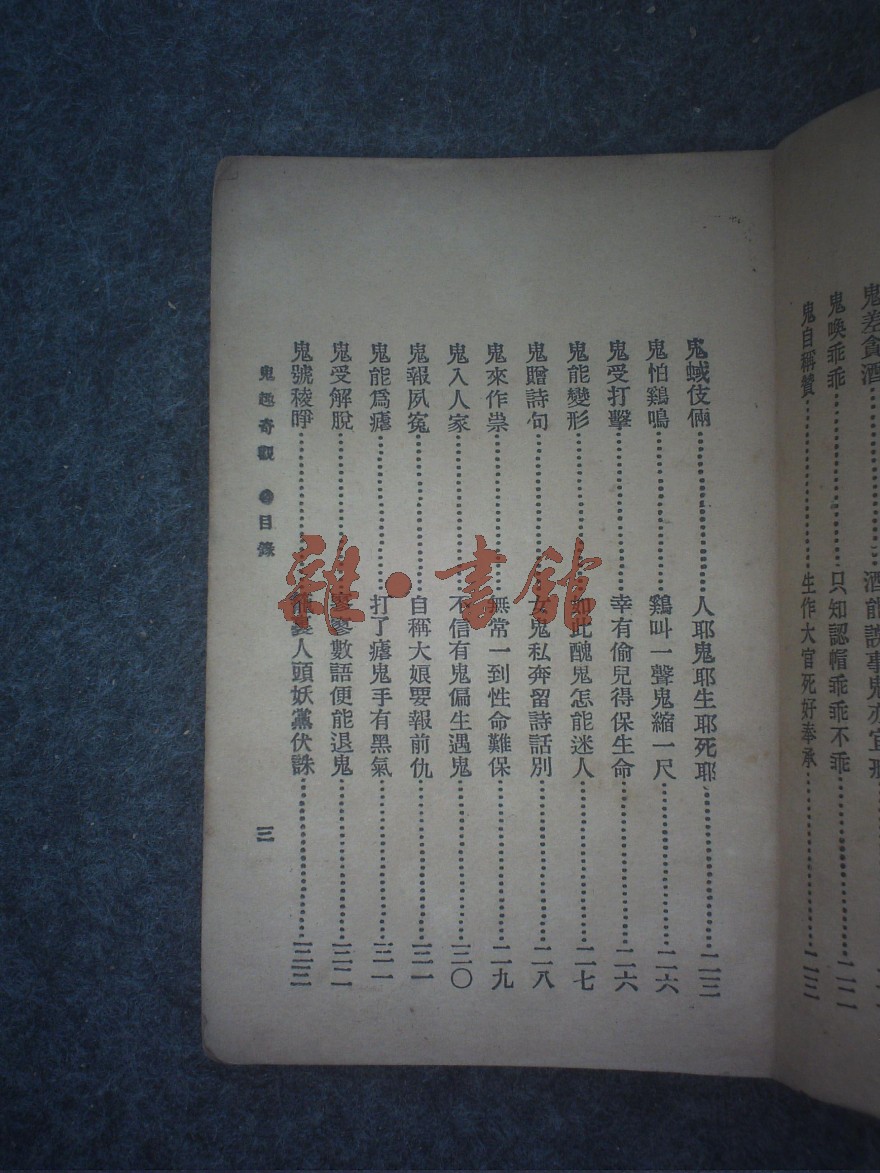 鬼差貪酒……酒能誤事鬼亦宜戒
鬼喚乖乖……只知認帽乖乖不乖……二二
鬼自稱贊……生作大官死好奉承……二三
鬼蜮伎倆……人耶鬼耶生耶死耶……二三
鬼怕鷄鳴……鷄叫一聲鬼縮一尺……二六
鬼受打擊……幸有偷兒得保生命……二六
鬼能變形……如此醜鬼怎能迷人……二七
鬼贈詩句……女鬼私奔留詩話別……二八
鬼來作祟……無常一到性命難保……二九
鬼入人家……不信有鬼偏生遇鬼……三〇
鬼報夙冤……自稱大娘要報前仇……三一
鬼能爲瘧……打了瘧鬼手有黑氣……三一
鬼受解脫……寥寥數語便能退鬼……三二
鬼號稜睜……龍裹人頭妖黨伏誅……三三
鬼趣奇觀 目錄
三
雜·書館